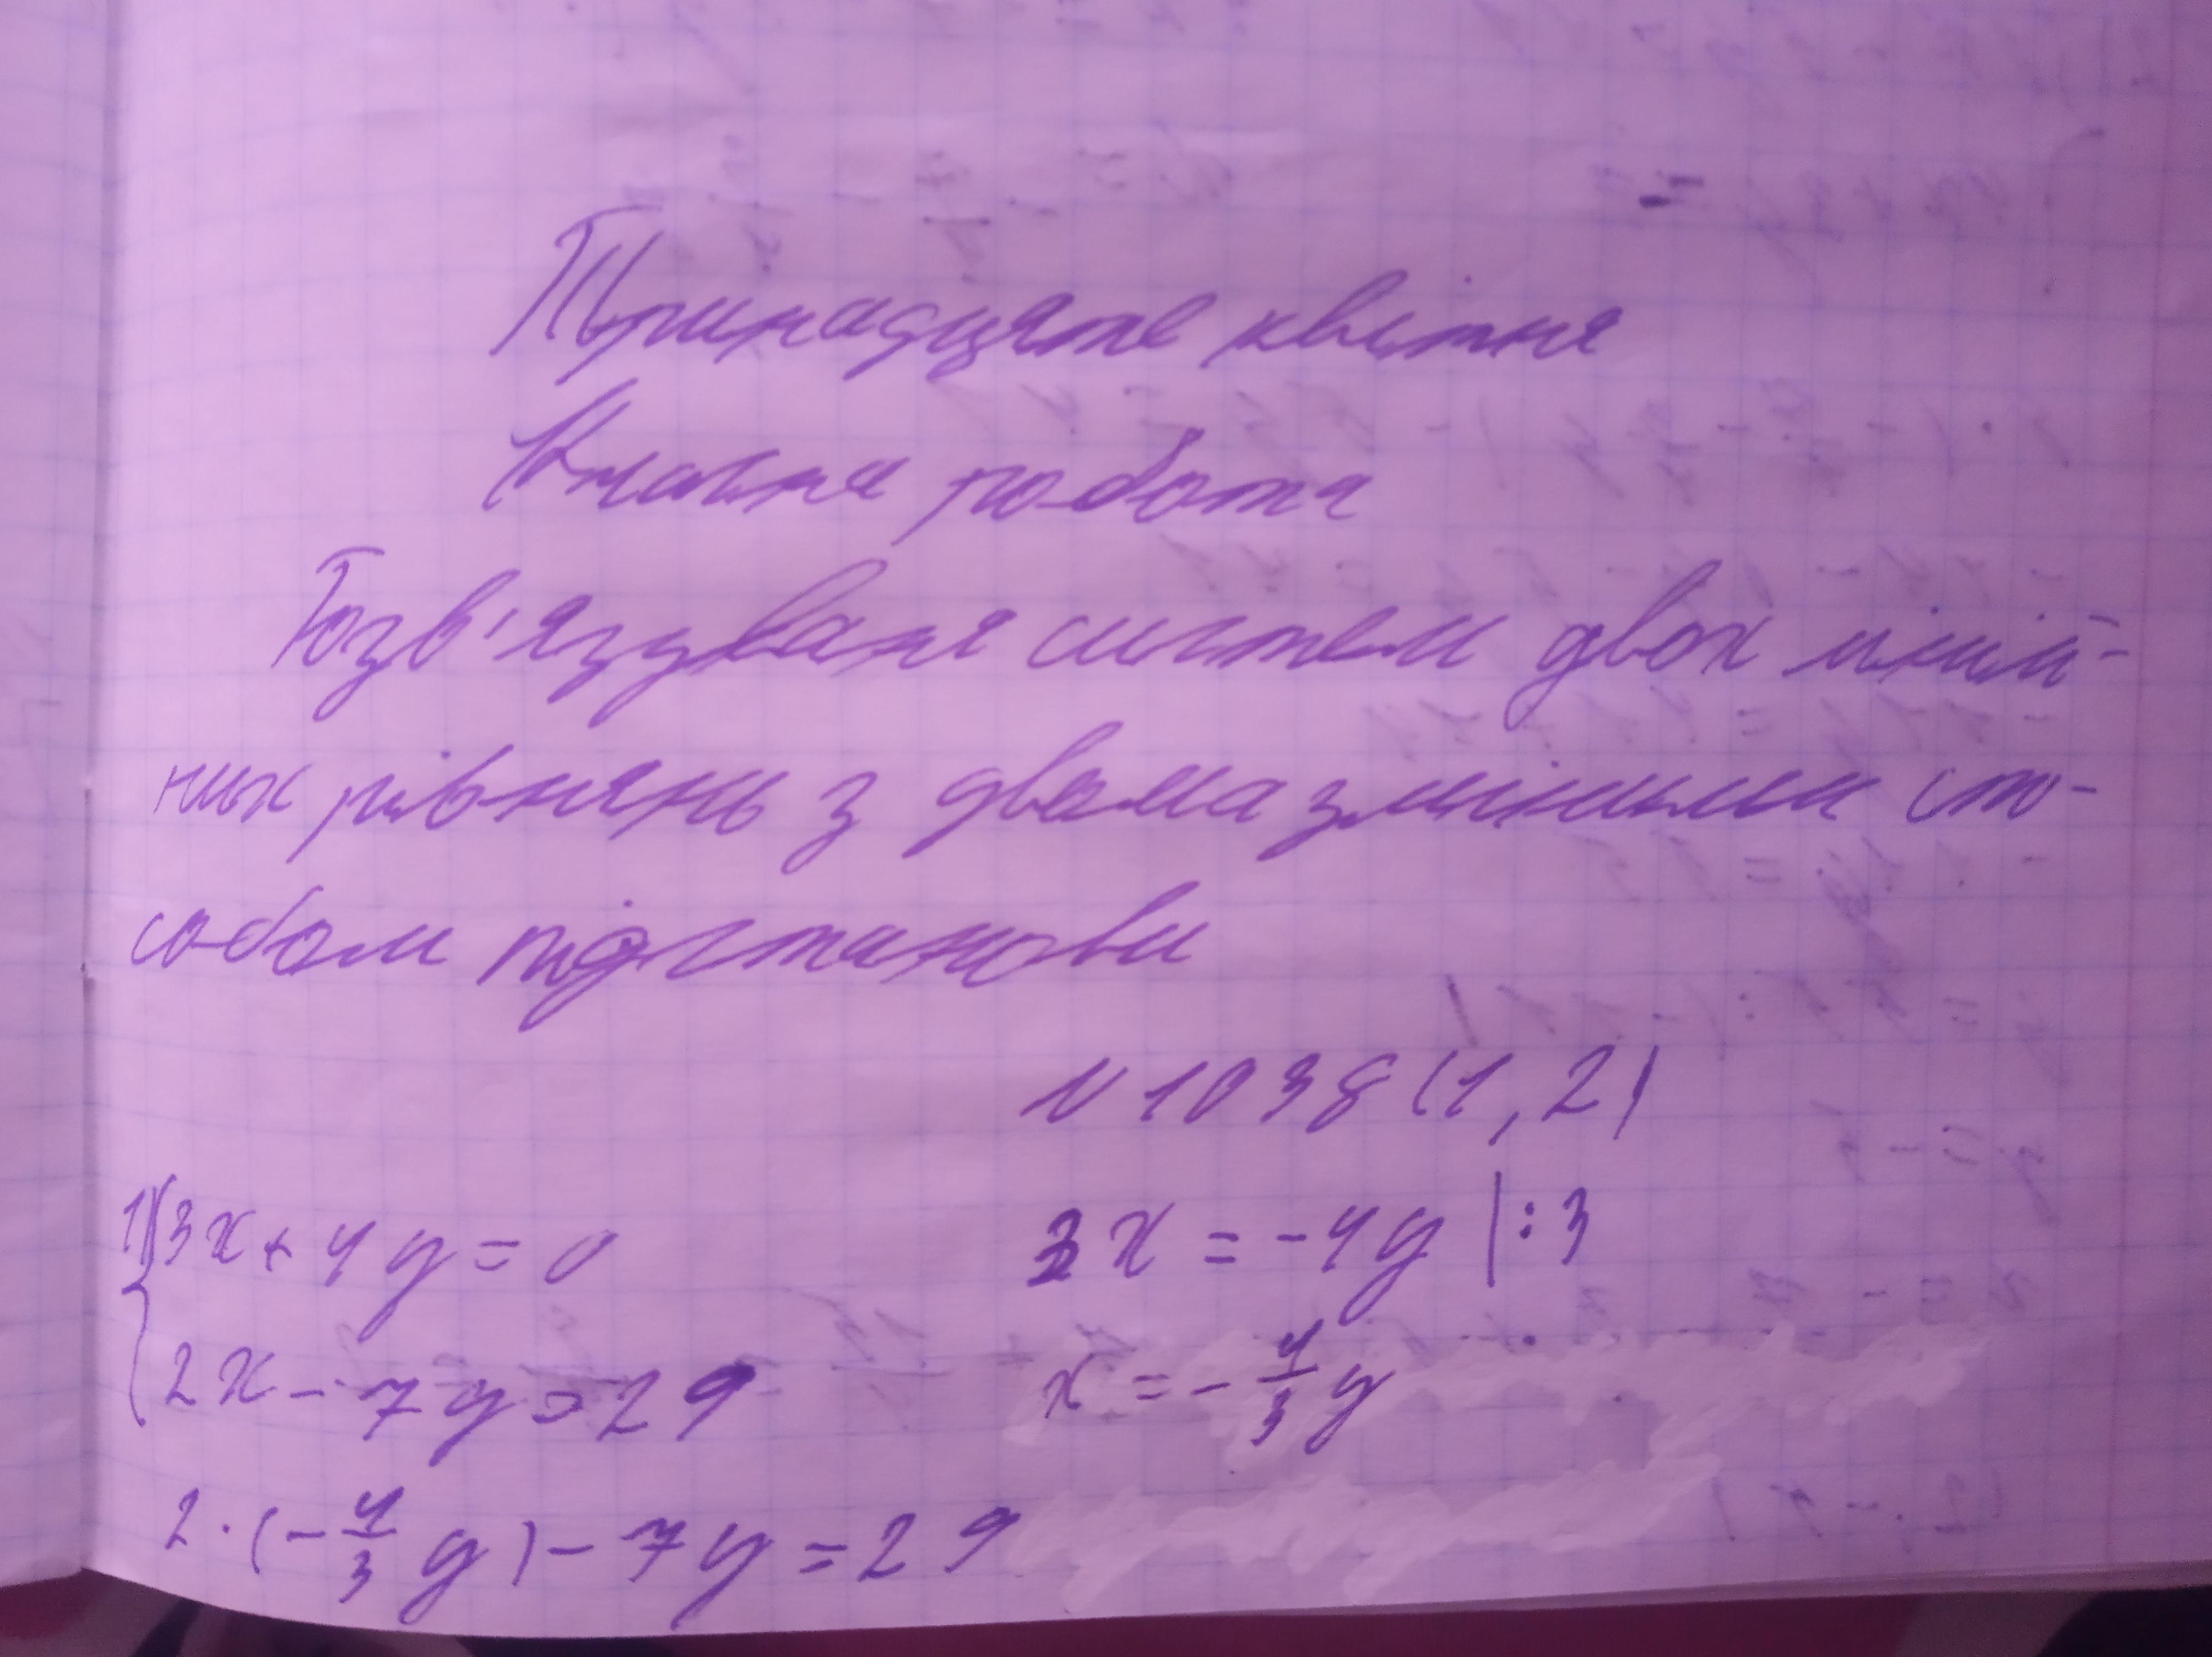 Тринадцяте квітня
Класна робота
Розв'язуваня систем двох ліній-
них рівнянь з двома змінними спо-
собом підстанови
N 1038 (1, 2)
1) { 3x + 4y = 0
3x = -4y |:3
2x - 7y = 29
x = - 4/3 y
2 · (- 4/3 y) - 7y = 29